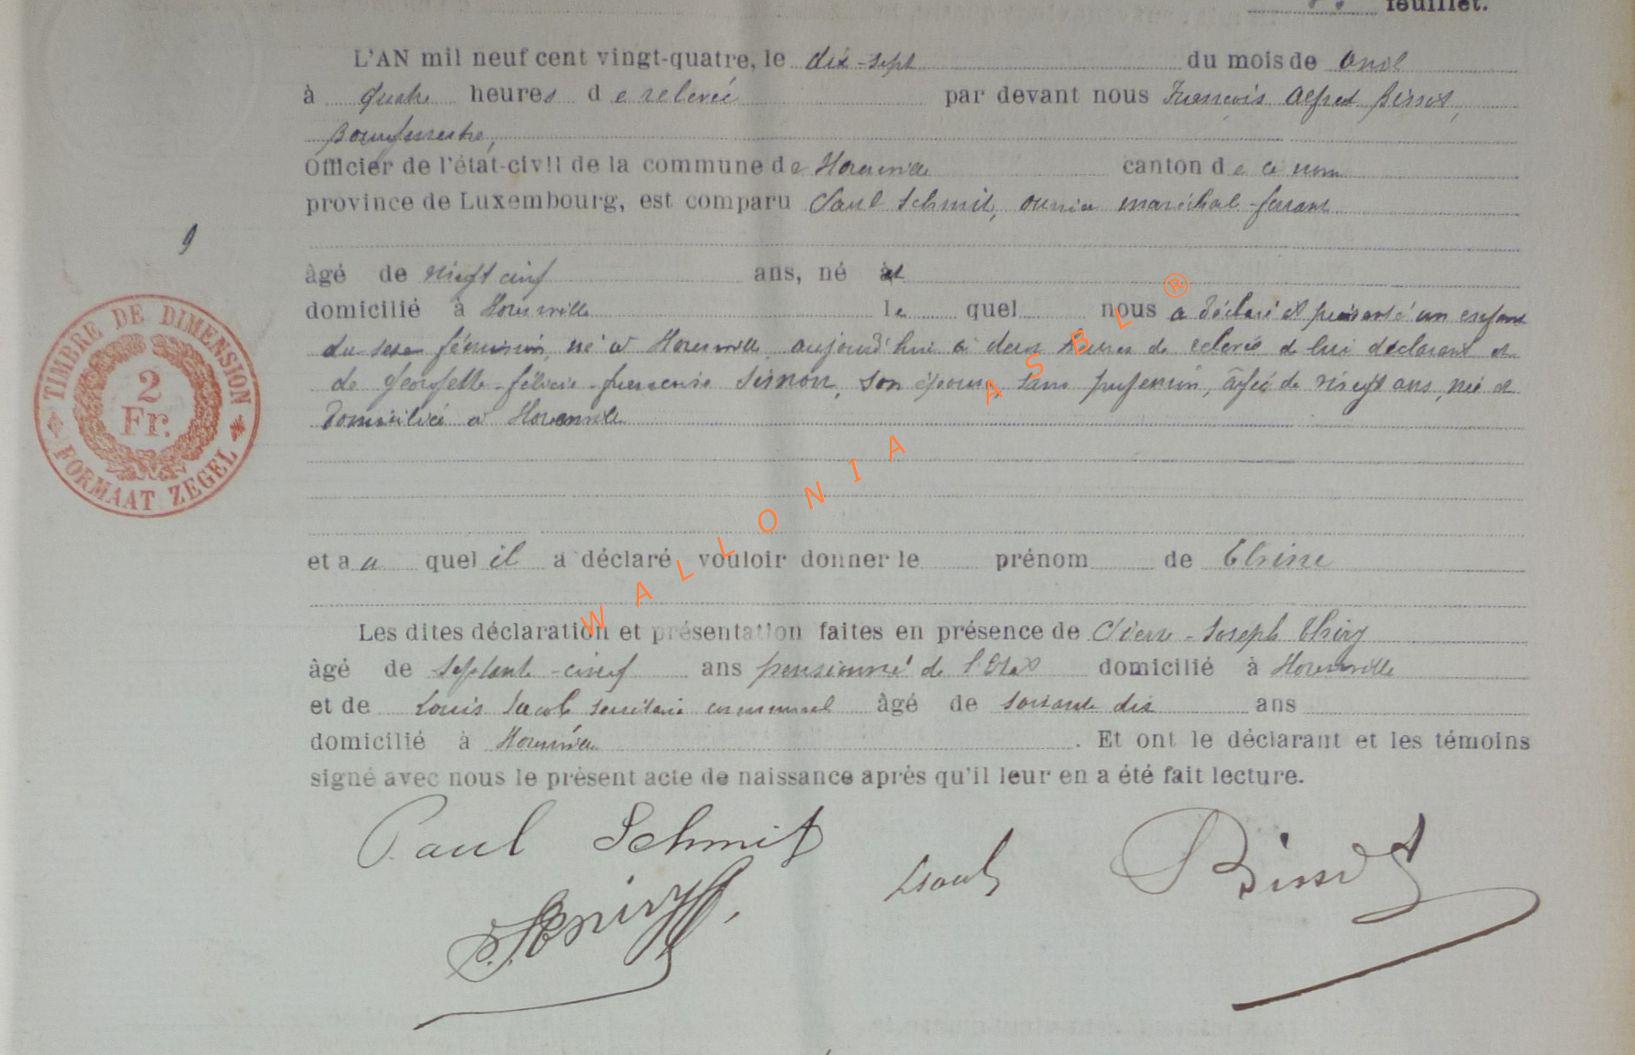 feuillet.
L'AN mil neuf cent vingt-quatre, le dix-sept du mois de avril
à quatre heures de relevée par devant nous François Alfred Bissot,
Bourgmestre,
Officier de l'état-civil de la commune de Houmville canton de ce nom
province de Luxembourg, est comparu Paul Schmit, ouvrier maréchal-ferrant
9
âgé de vingt cinq ans, né et
domicilié à le quel nous a déclaré et présenté un enfant
du sexe féminin, né à aujourd'hui à deux heures de relevée de lui déclarant et
de Georgette-Félicie- Simon, son épouse, sans profession, âgée de vingt ans, née et
domiciliée à
et a u quel il a déclaré vouloir donner le prénom de
Les dites déclaration et présentation faites en présence de Pierre-Joseph Thiry
âgé de septante-cinq ans pensionné de l'Etat domicilié à
et de Louis Jacob secrétaire communal âgé de soixante dix ans
domicilié à . Et ont le déclarant et les témoins
signé avec nous le présent acte de naissance après qu'il leur en a été fait lecture.
Paul Schmit
Thiry
Jacob
Bissot
TIMBRE DE DIMENSION
2
Fr.
FORMAAT ZEGEL
WALLONIA ASBL ®